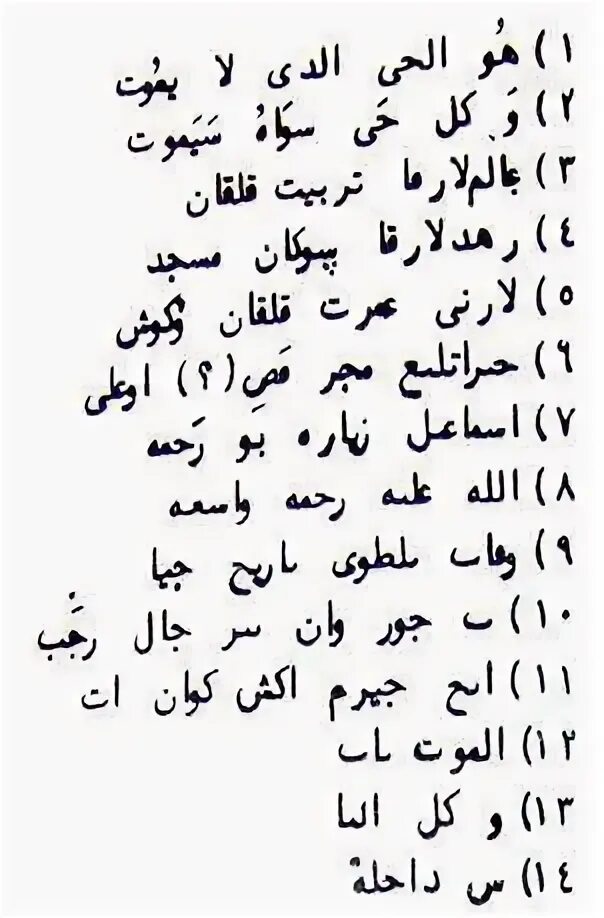 ١) هُو الحى الدى لا يمُوت
٢) وَ كل حَى سوَاهُ سَيَموت
٣) عالملارقا تربيت قلقان
٤) رهدلارقا سوكان مسجد
٥) لارنى عمرت قلقان وكوش
٦) حىراتلىع مجر قص (؟) اوعلى
٧) اسماعىل نهاره بو رَحمه
٨) الله علىه رحمه واسعه
٩) وفاب ىلطوى ىاريح جيا
١٠) ٮ جور وان ىىر جال رجَب
١١) اىح جيرم اكش كوان ات
١٢) الموت ىاٮ
١٣) و كل الىا
١٤) س داحلة